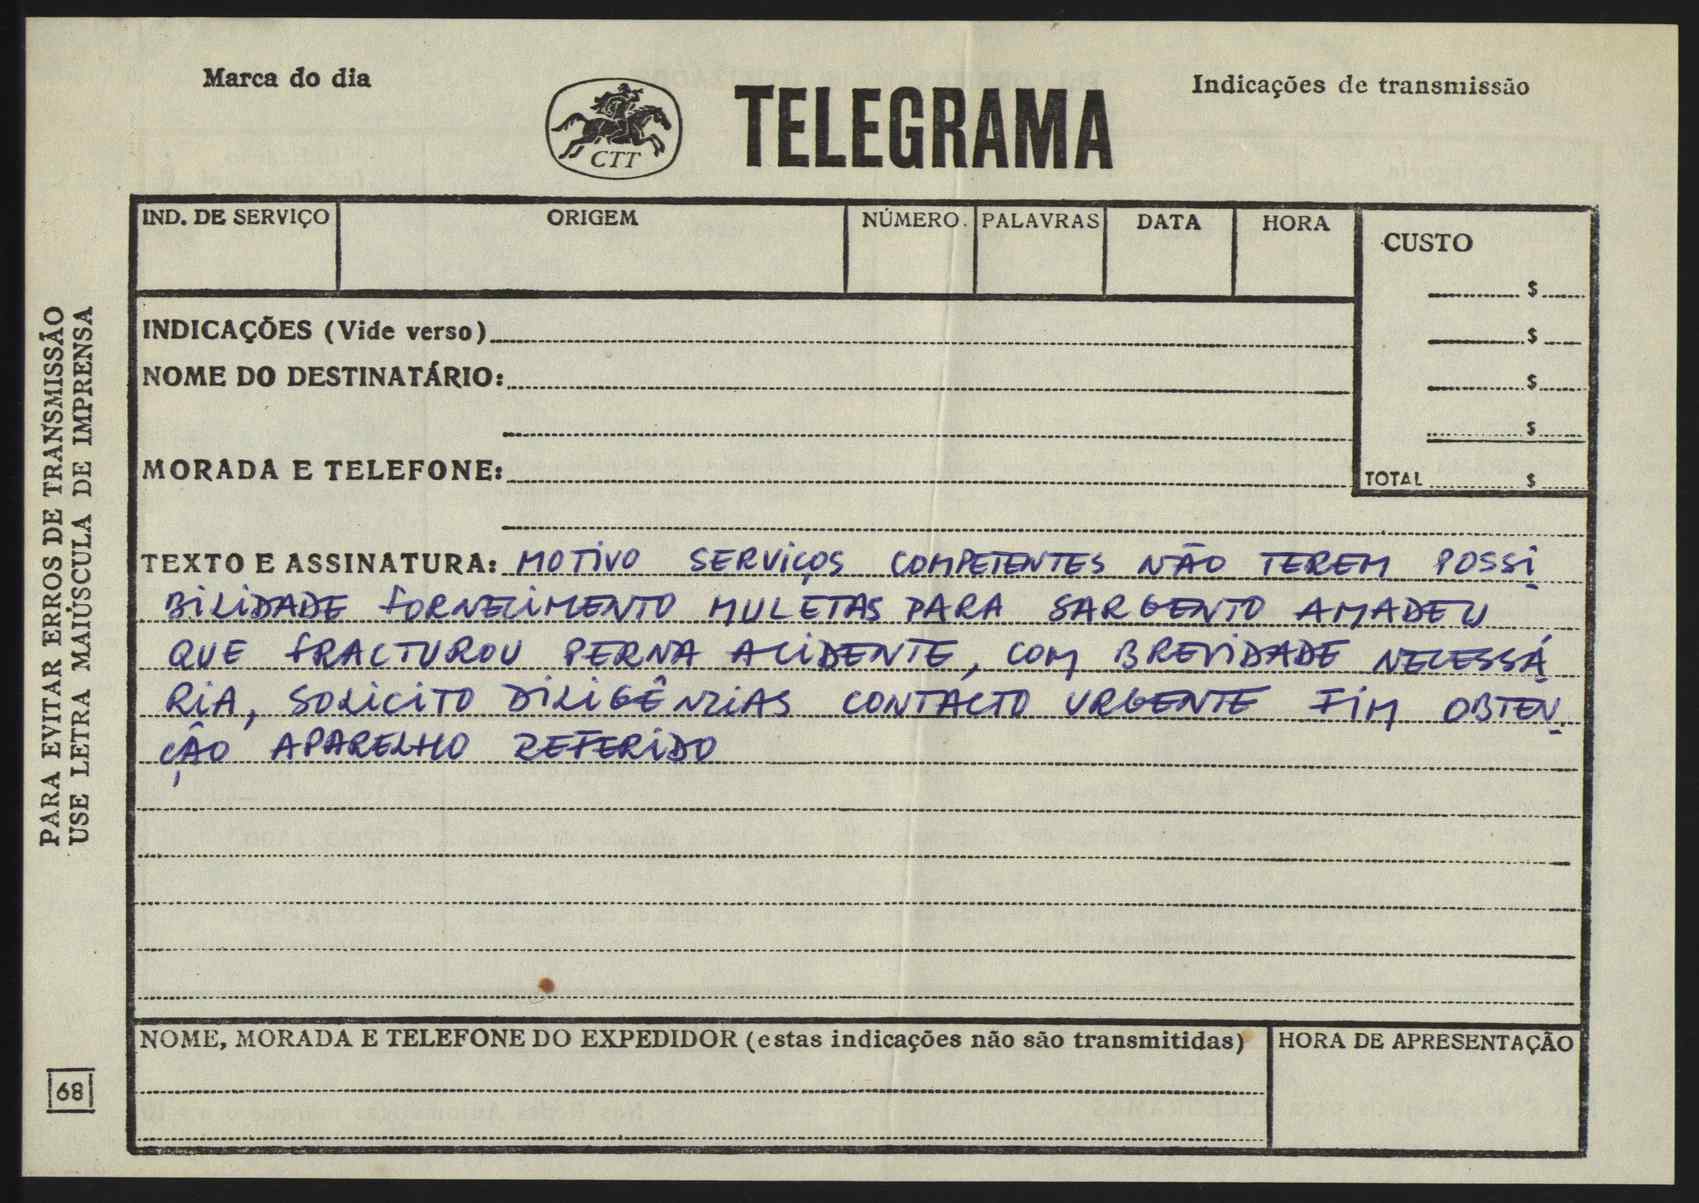 Marca do dia
CTT
TELEGRAMA
Indicações de transmissão
IND. DE SERVIÇO
ORIGEM
NÚMERO.
PALAVRAS
DATA
HORA
CUSTO
$
$
$
$
TOTAL $
INDICAÇÕES (Vide verso)
NOME DO DESTINATÁRIO:
MORADA E TELEFONE:
TEXTO E ASSINATURA: MOTIVO SERVIÇOS COMPETENTES NÃO TEREM POSSI
BILIDADE FORNECIMENTO MULETAS PARA SARGENTO AMADEU
QUE FRACTUROU PERNA ACIDENTE, COM BREVIDADE NECESSÁ
RIA, SOLICITO DILIGÊNCIAS CONTACTO URGENTE FIM OBTEN
ÇÃO APARELHO REFERIDO
NOME, MORADA E TELEFONE DO EXPEDIDOR (estas indicações não são transmitidas)
HORA DE APRESENTAÇÃO
PARA EVITAR ERROS DE TRANSMISSÃO
USE LETRA MAIÚSCULA DE IMPRENSA
68